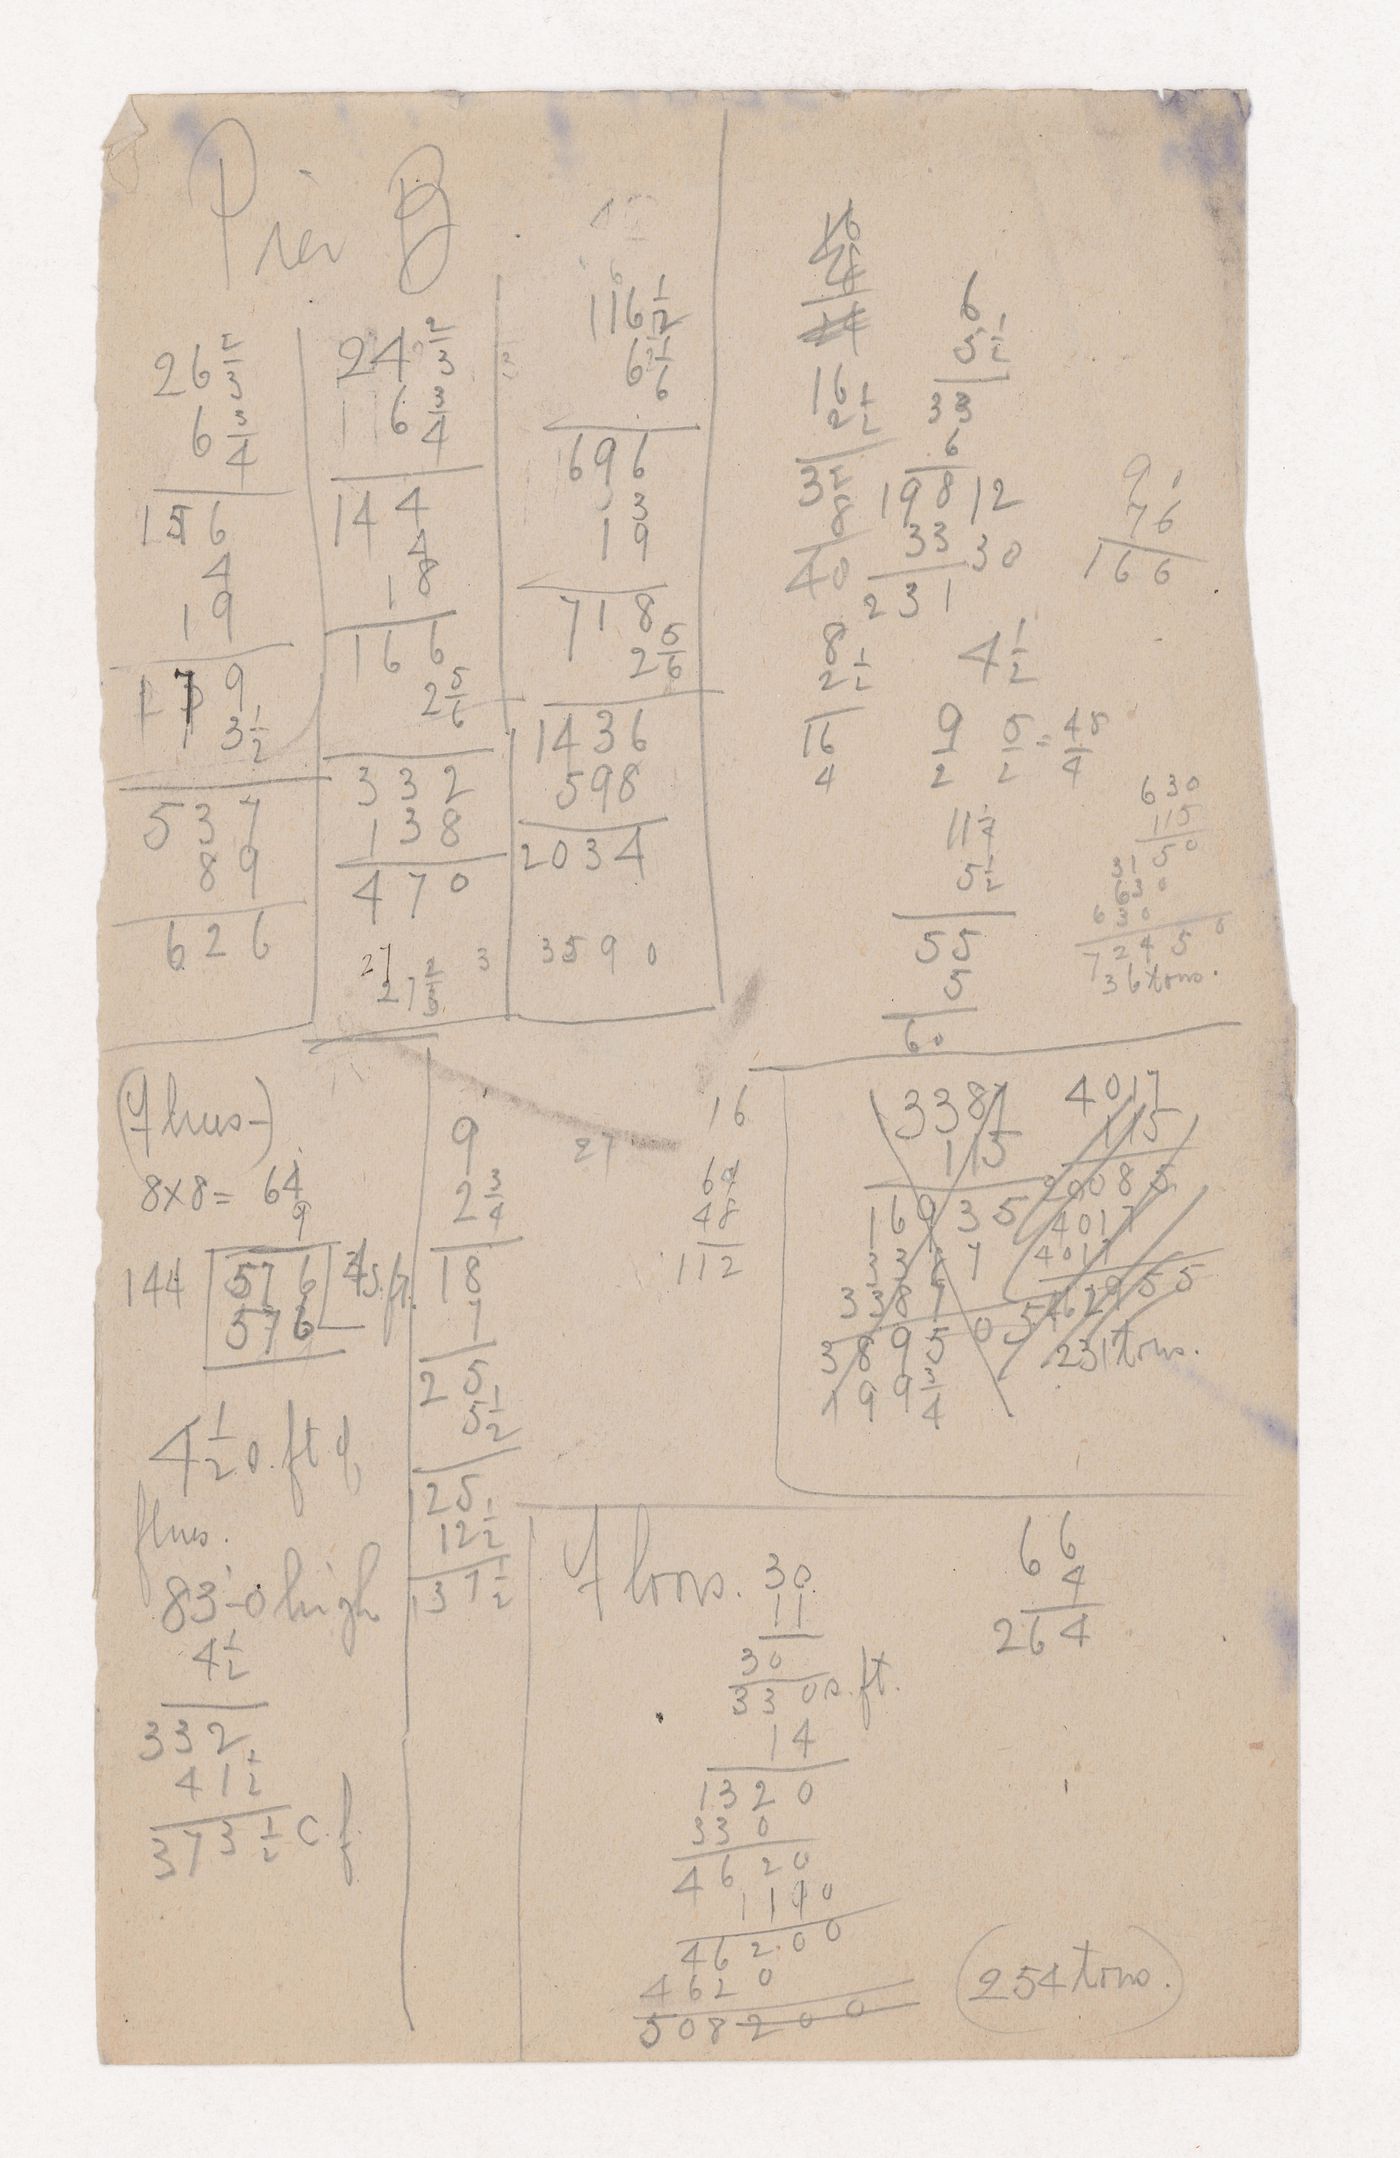 Pier B
26 2/3
6 3/4
156
4
19
179
3 1/2
537
89
626
24 2/3
6 3/4
144
4
18
166
2 5/6
332
138
470
27
27 2/3
3
116 1/2
6 1/6
696
3
19
718
2 5/6
1436
598
2034
3590
16
4
16
2 1/2
32
8
40
8
2 1/2
16
4
6
5 1/2
33
6
198 12
33 30
231
4 1/2
9/2 5/2 = 45/4
11 1/4
5 1/2
55
5
60
90
76
166
630
115
3150
630
630
72450
36 tons.
(Flues-)
8x8= 64
9
144 576 4 s.ft.
576
4 1/2 o. ft of
flues.
83'-0 high
4 1/2
332
41 1/2
373 1/2 c.f
9
2 3/4
18
7
25
5 1/2
125
12 1/2
137 1/2
27
16
64
48
112
3387
115
16935
3387
3387
389505
199 3/4
4017
115
20085
4017
4017
461955
231 tons.
Floors. 30
11
30
330 o. ft.
14
1320
330
4620
110
46200
4620
508200
66
4
264
254 tons.